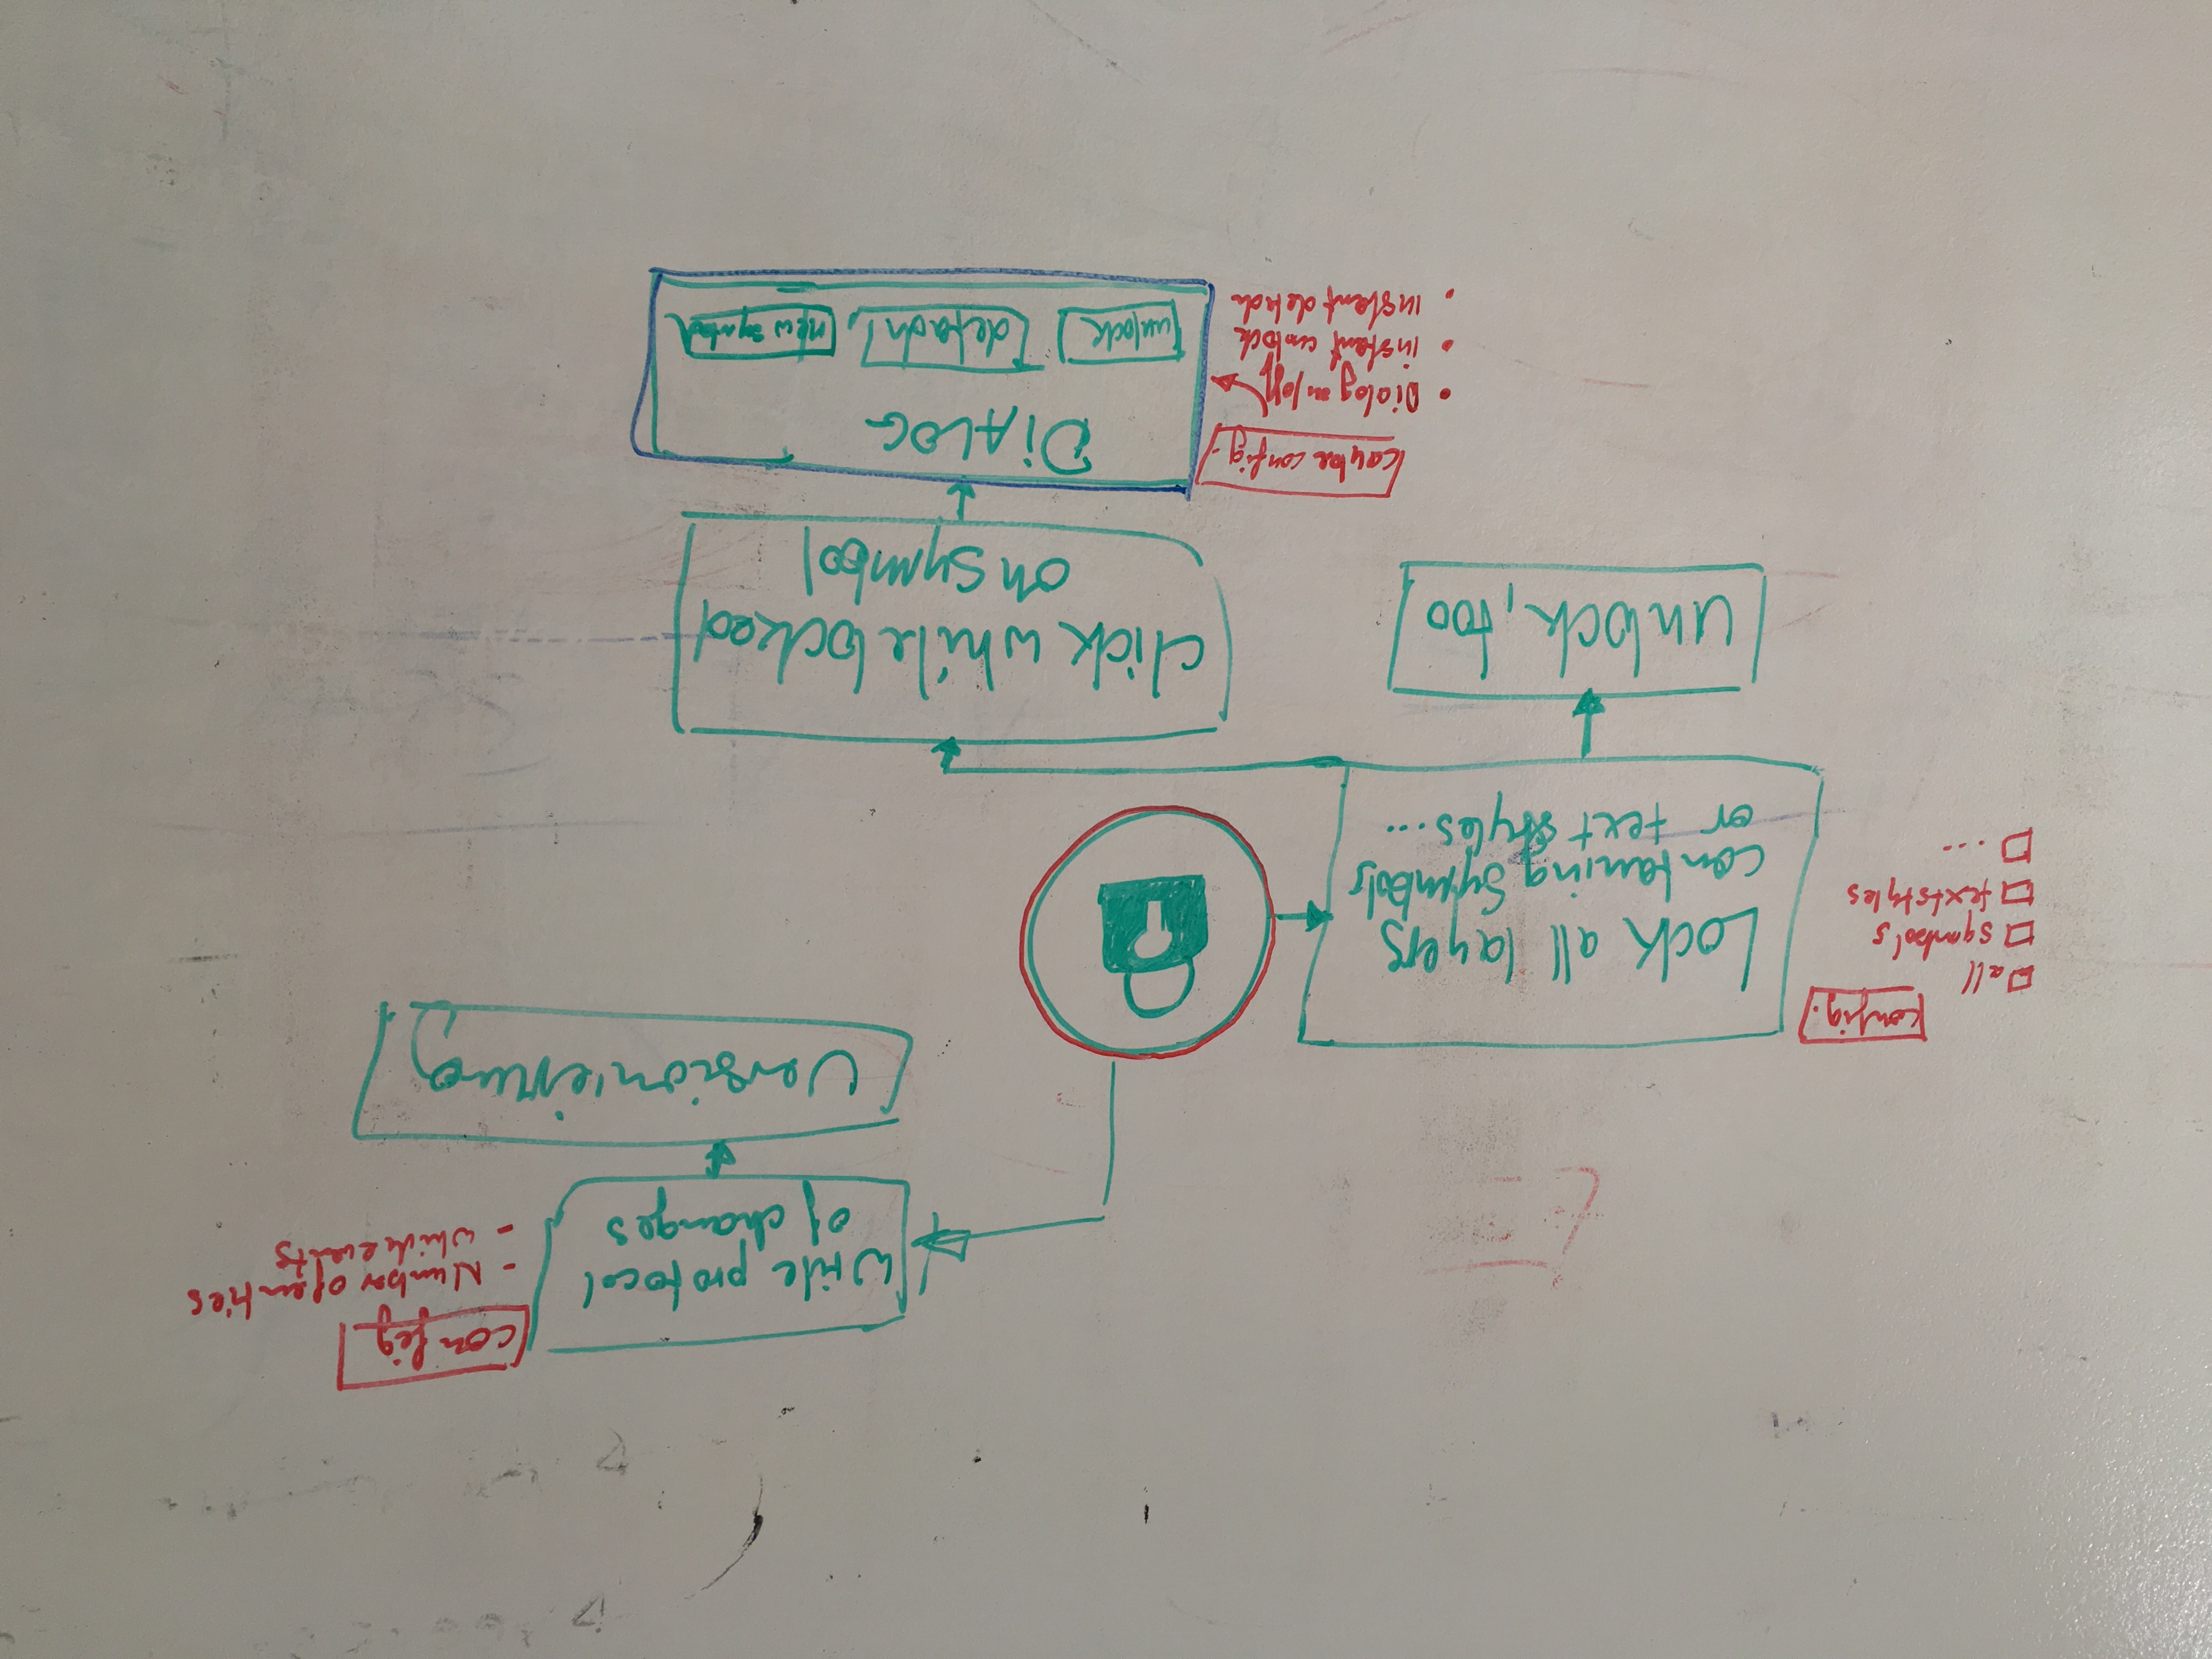 config
Write protocol
of changes
- Number of enties
- which events
Versionierung
config.
all
symbols
textstyles
...
Lock all layers
containing Symbols
or text styles...
unlock, too
click while locked
on symbol
can be config.
• Dialog on/off
• instant unlock
• instant detach
DiALOG
unlock
detach
new symbol